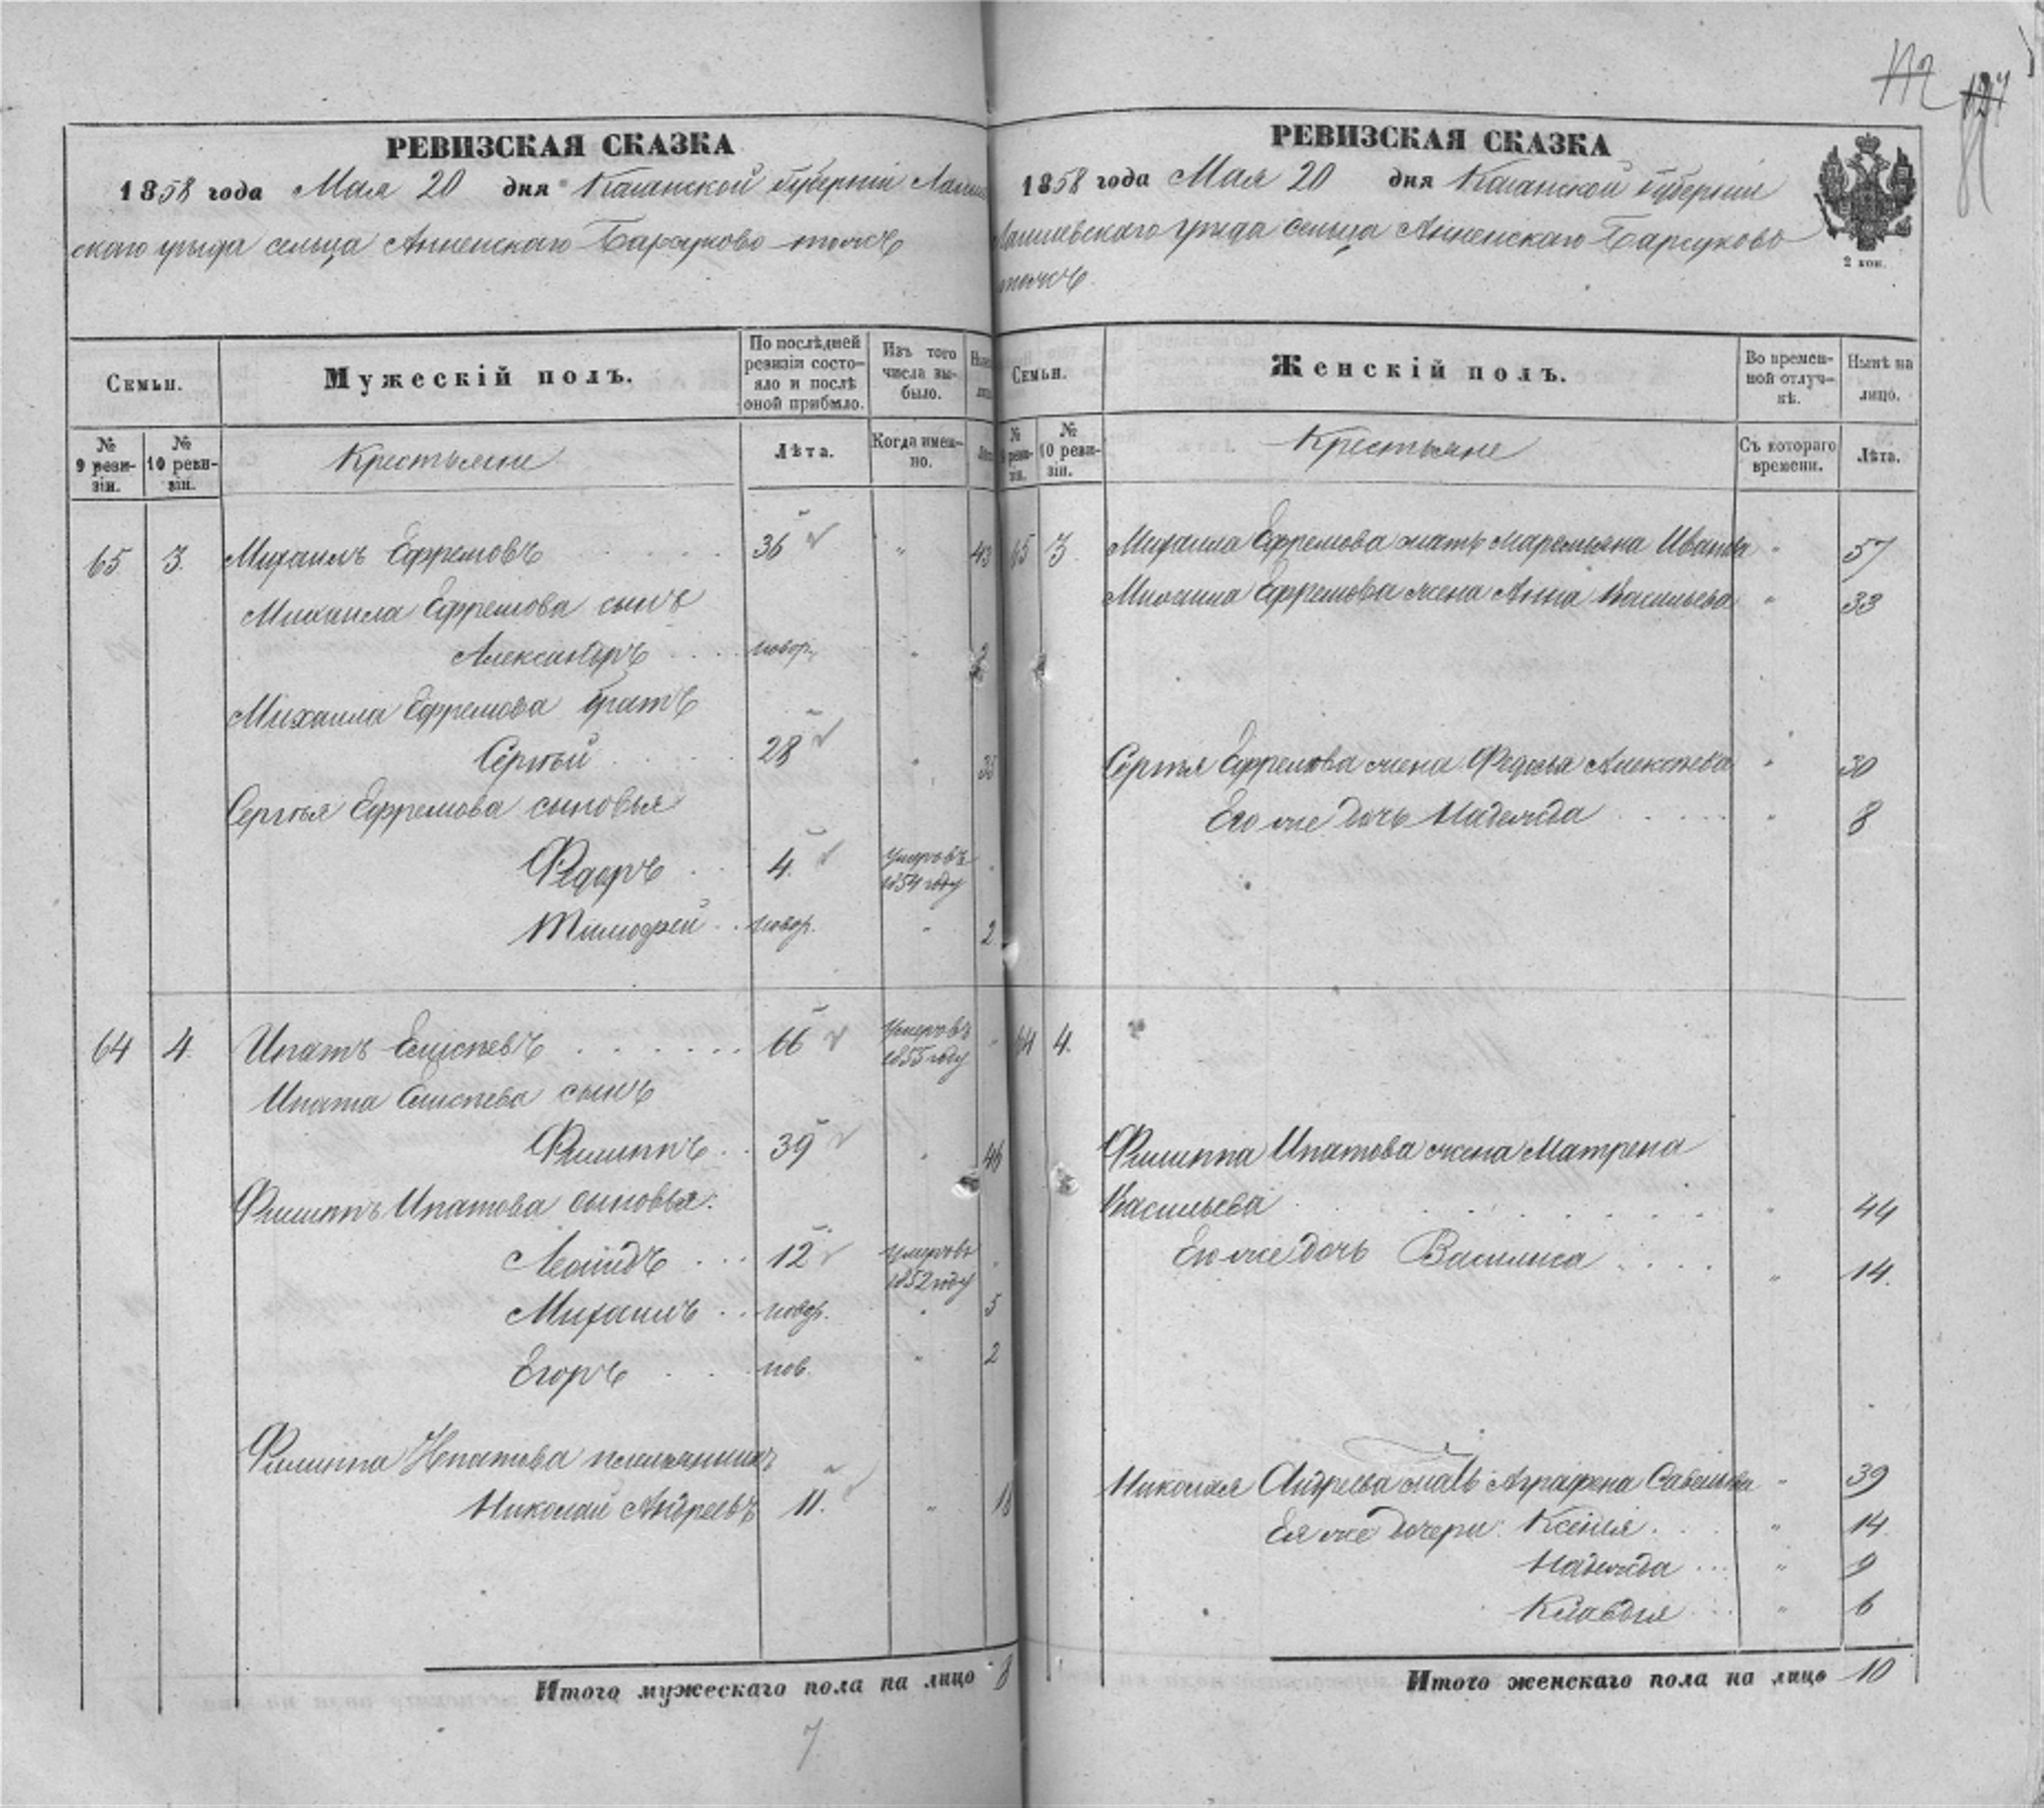 112
124
РЕВИЗСКАЯ СКАЗКА
1858 года Мая 20 дня Казанской губерніи Лаише
скаго уѣзда сельца Анненскаго Барсуково тожъ
Семьи.
Мужескій полъ.
По послѣдней ревизіи состояло и послѣ оной прибыло.
Изъ того числа выбыло.
№ 9 ревизіи.
№ 10 ревизіи.
Крестьяне
Лѣта.
Когда именно.
65 3. Михаилъ Ефремовъ 36 " 43
Михаила Ефремова сынъ
Александръ новор. "
Михаила Ефремова братъ
Сергѣй 28 " 35
Сергѣя Ефремова сыновья
Федоръ 4. умеръ въ 1854 году
Тимофей новор. " 2
64 4. Ипатъ Елисѣевъ 66 Умеръ въ 1855 году
Ипата Елисѣева сынъ
Филиппъ 39 " 46
Филиппъ Ипатова сыновья:
Леонидъ 12 умеръ въ 1852 году
Михаилъ новор. " 5
Егоръ нов. " 2
Филиппа Ипатова племянникъ
Николай Андреевъ 11. " 18
Итого мужескаго пола на лицо 8
7
РЕВИЗСКАЯ СКАЗКА
1858 года Мая 20 дня Казанской губерніи
Лаишевскаго уѣзда сельца Анненскаго Барсуково
тожъ
2 коп.
Семьи.
Женскій полъ.
Во временной отлучкѣ.
Нынѣ на лицо.
№ 10 ревизіи.
Крестьяне
Съ котораго времени.
Лѣта.
65 3 Михаила Ефремова мать Маремьяна Иванова " 57
Михаила Ефремова жена Анна Васильева " 33
Сергѣя Ефремова жена Федосья Алексѣева " 30
Его же дочь Надежда " 8
64 4.
Филиппа Ипатова жена Матрена
Васильева " 44
Его же дочь Василиса " 14.
Николая Андреева мать Аграфена Савельева " 39
Ея же дочери: Ксенія " 14
Надежда " 9
Клавдия " 6
Итого женскаго пола на лицо 10